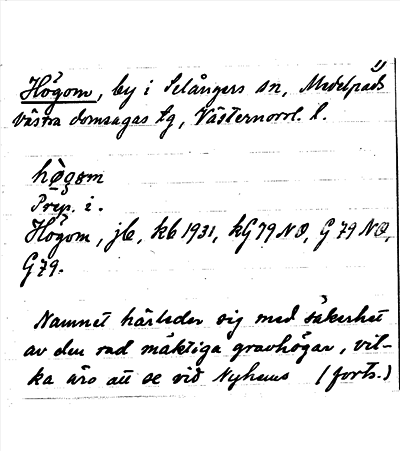 1)
Högom, by i Selångers sn, Medelpads
västra domsagas tg, Västernorrl. l.
hø̀gom
Prep. i.
Högom, jb, kb 1931, kG 79 NO, G 79 NO,
G 79.
Namnet härleder sig med säkerhet
av den rad mäktiga gravhögar, vil-
ka äro att se vid Nyhems (forts.)